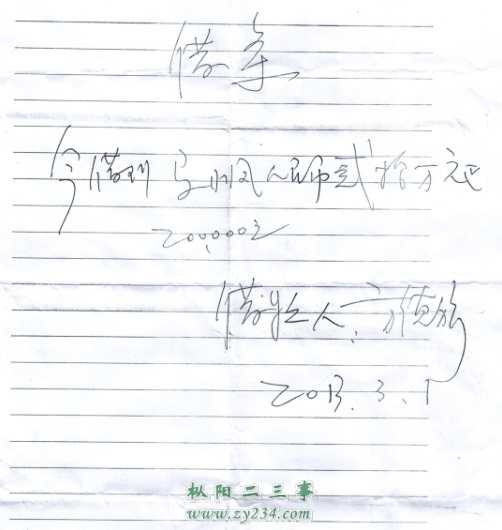 借条
今借到 人民币贰拾万元正
200,000元
借款人:方
2013.3.1
枞阳二三事
www.zy234.com